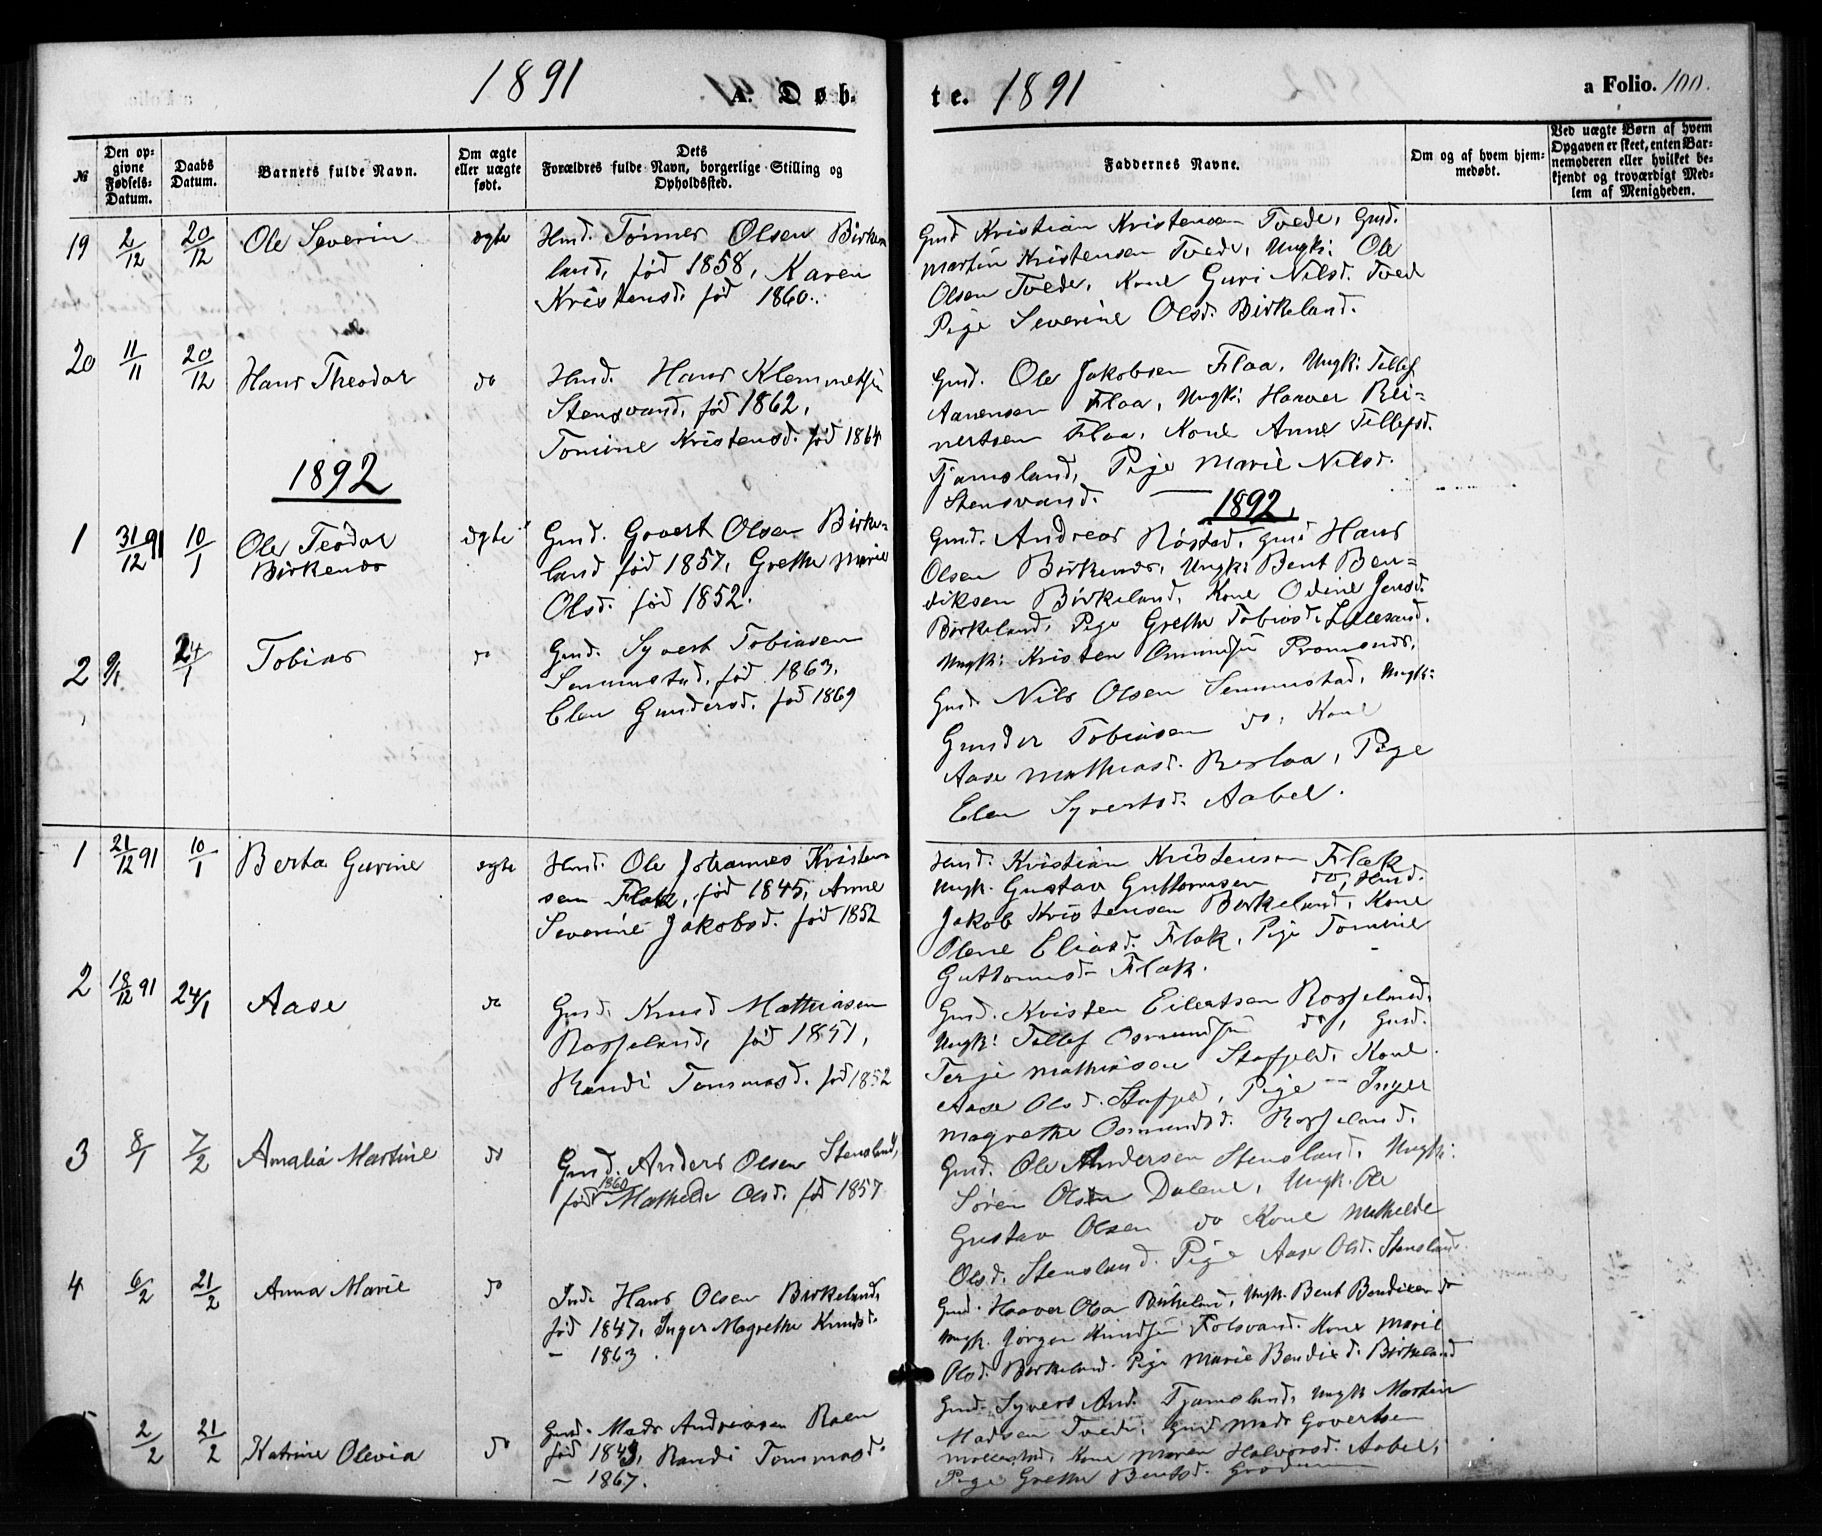 1891
A. Døb-
№
Den op-
givne
Fødsels-
Datum.
Daabs
Datum.
Barnets fulde Navn.
Om ægte
eller uægte
født.
Dets
Forældres fulde Navn, borgerlige Stilling og
Opholdssted.
19 2/12 20/12 Ole Severin ægte Hmd. Tönnes Olsen Birke
land, fød 1858, Karen
Kristensd. fød 1860.
20 11/11 20/12 Hans Theodor do Hmd. Hans Klemmetsen
Stensvand, fød 1862,
Tomine Kristensd. fød 1864
1892
1 31/12 91 10/1 Ole Teodor ægte Gmd. Govert Olsen Birke-
Birkenes land fød 1857, Grethe Marie
Olsd. fød 1852.
2 9/1 24/1 Tobias do Gmd. Syvert Tobiasen
Senumstad, fød 1863,
Elen Gundersd. fød 1869
1 21/12 91 10/1 Berta Gurine ægte Hmd. Ole Johannes Kristen
sen Flak, fød 1845, Anne
Severine Jakobsd. fød 1852
2 18/12 91 24/1 Aase do Gmd. Knud Mathiasen
Rosseland, fød 1851,
Randi Tommasd. fød 1852
3 8/1 7/2 Amalia Martine do Gmd. Anders Olsen Stensland,
fød 1860 Mathilde Olsd. fød 1857
4 6/2 21/2 Anna Marie do Inds. Hans Olsen Birkeland,
fød 1847, Inger Magrethe Knudsd.
— 1863.
2/2 21/2 Katrine Olevia do Gmd. Mads Andreasen Roen
fød 1843, Randi Tommasd.
— 1867.
te. 1891
a Folio. 100.
Faddernes Navne.
Om og af hvem hjem-
medøbt.
Ved uægte Børn af hvem
Opgaven er skeet, enten Bar-
nemoderen eller hvilket be-
kjendt og troværdigt Med-
lem af Menigheden.
Gmd Kristian Kristensen Tvede, Gmd.
Martin Kristensen Tvede, Ungk: Ole
Olsen Tvede, Kone Guri Nilsd. Tvede
Pige Severine Olsd. Birkeland.
Gmd. Ole Jakobsen Flaa, Ungk: Tellef
Aanensen Flaa, Ungk: Haaver Rei-
nertsen Flaa, Kone Anne Tellefsd.
Tjamsland, Pige Marie Nilsd.
Stensvand. — 1892,
Gmd. Andreas Röstad, gmd Hans
Olsen Birkenes, Ungk: Bent Ben-
diksen Birkeland, Kone Odine Jensd.
Birkeland, Pige Grethe Tobiasd. Lillesand.
Ungk: Kristen Omundsen
Gmd Nils Olsen Senumstad, Ungk:
Gunder Tobiasen do, Kone
Aase Mathiasd. Pige
Elen Syvertsd. Aabel.
Hmd. Kristian Kristensen Flak
Ungk. Gustav Guttormsen do, Hmd.
Jakob Kristensen Birkeland, Kone
Olene Eliasd. Flak, Pige Tomine
Guttormsd. Flak.
Gmd. Kristen Eilertsen Rosseland,
Ungk: Tellef Osmundsen do, Gmd.
Terje Mathiasen Kone
Aase Olsd. Pige — Inger
Magrethe Osmundsd. Rosseland,
Gmd. Ole Andersen Stensland, Ungk:
Søren Olsen Dalene, Ungk. Ole
Gustav Olsen do Kone Mathilde
Olsd. Stensland. Pige Aase Olsd. Stensland
Gmd. Haaver Olsen Birkeland, Ungk. Bent Bendixen do
Ungk. Jørgen Knudsen Kone Marie
Olsd. Birkeland. Pige Marie Bendixd. Birkeland
Gmd. Syvert And. Tjamsland, Ungk Martin
Madsen Tvede, Gmd Mads Govertsen
Kone Maren Halvorsd. Aabel,
Pige Grethe Bentsd.